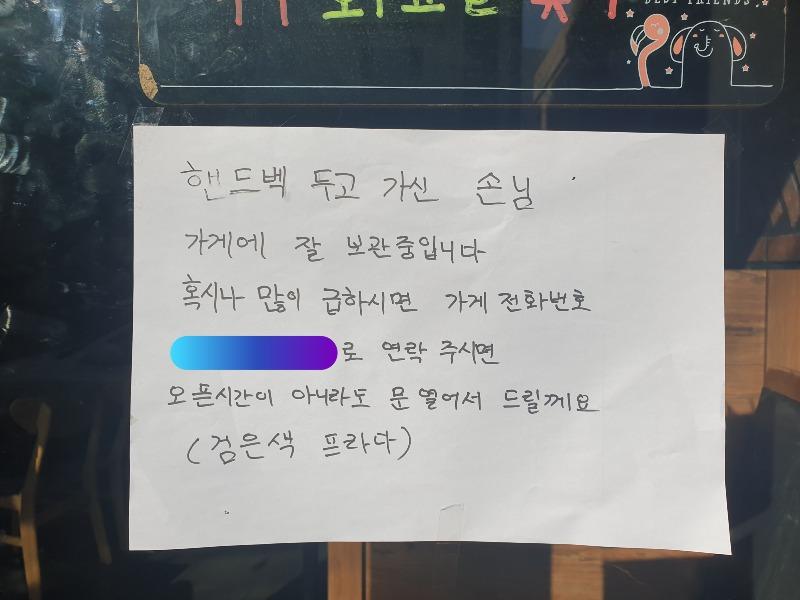 BEST FRIENDS.
핸드백 두고 가신 손님
가게에 잘 보관중입니다
혹시나 많이 급하시면 가게 전화번호
로 연락 주시면
오픈시간이 아니라도 문 열어서 드릴께요
(검은색 프라다)